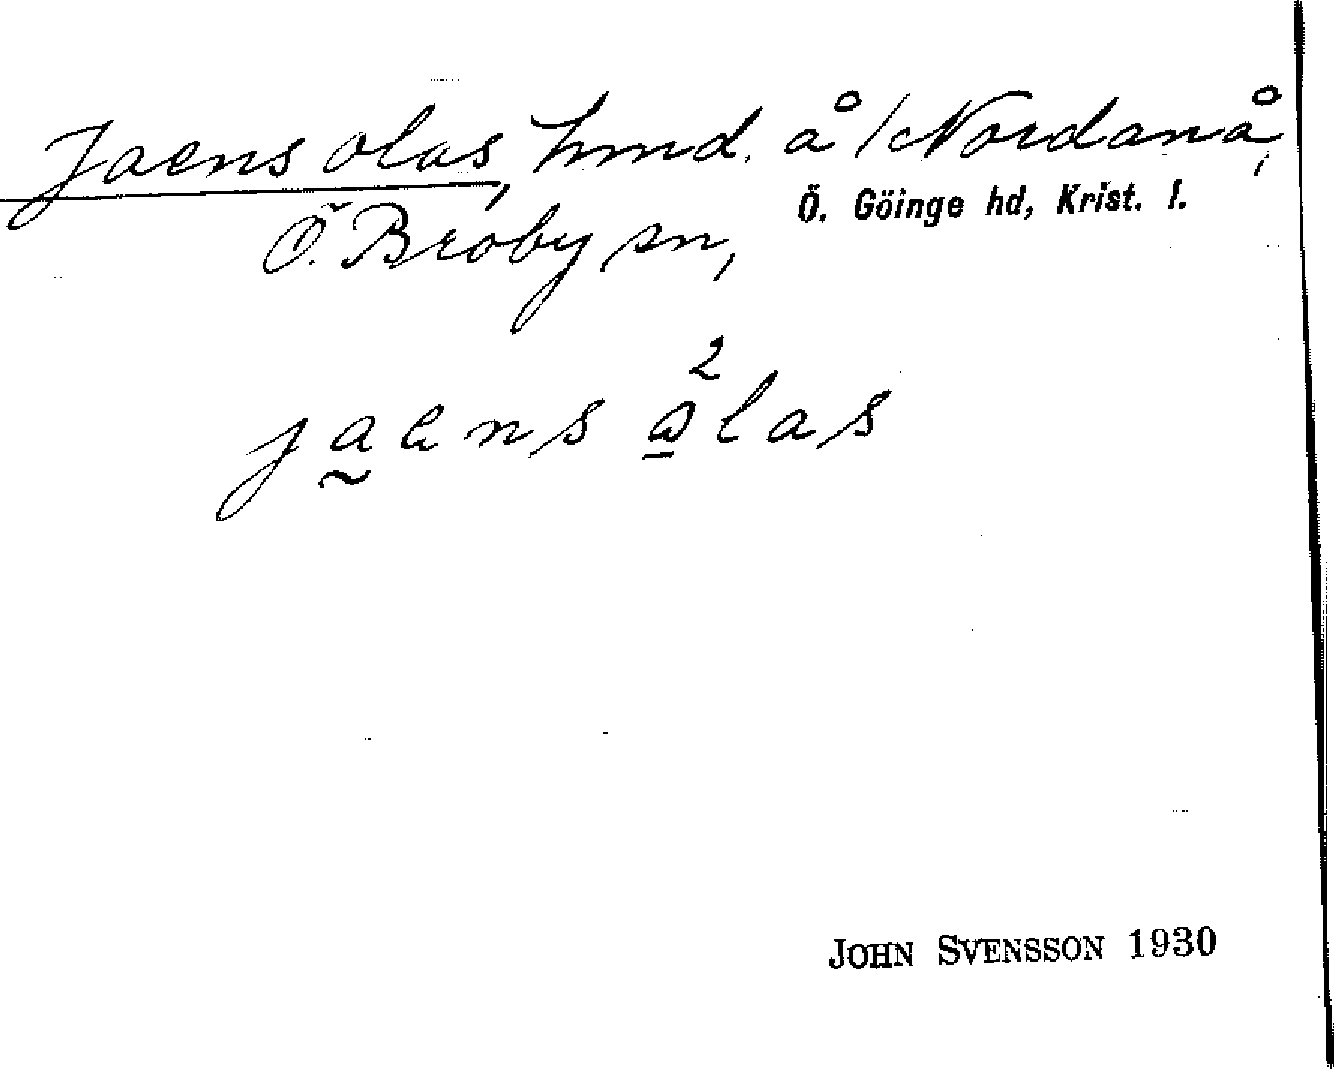 Jaens olas, hmd. å /Nordanå,
Ö. Göinge hd, Krist. l.
Ö. Broby sn,
jaens ålas
JOHN SVENSSON 1930